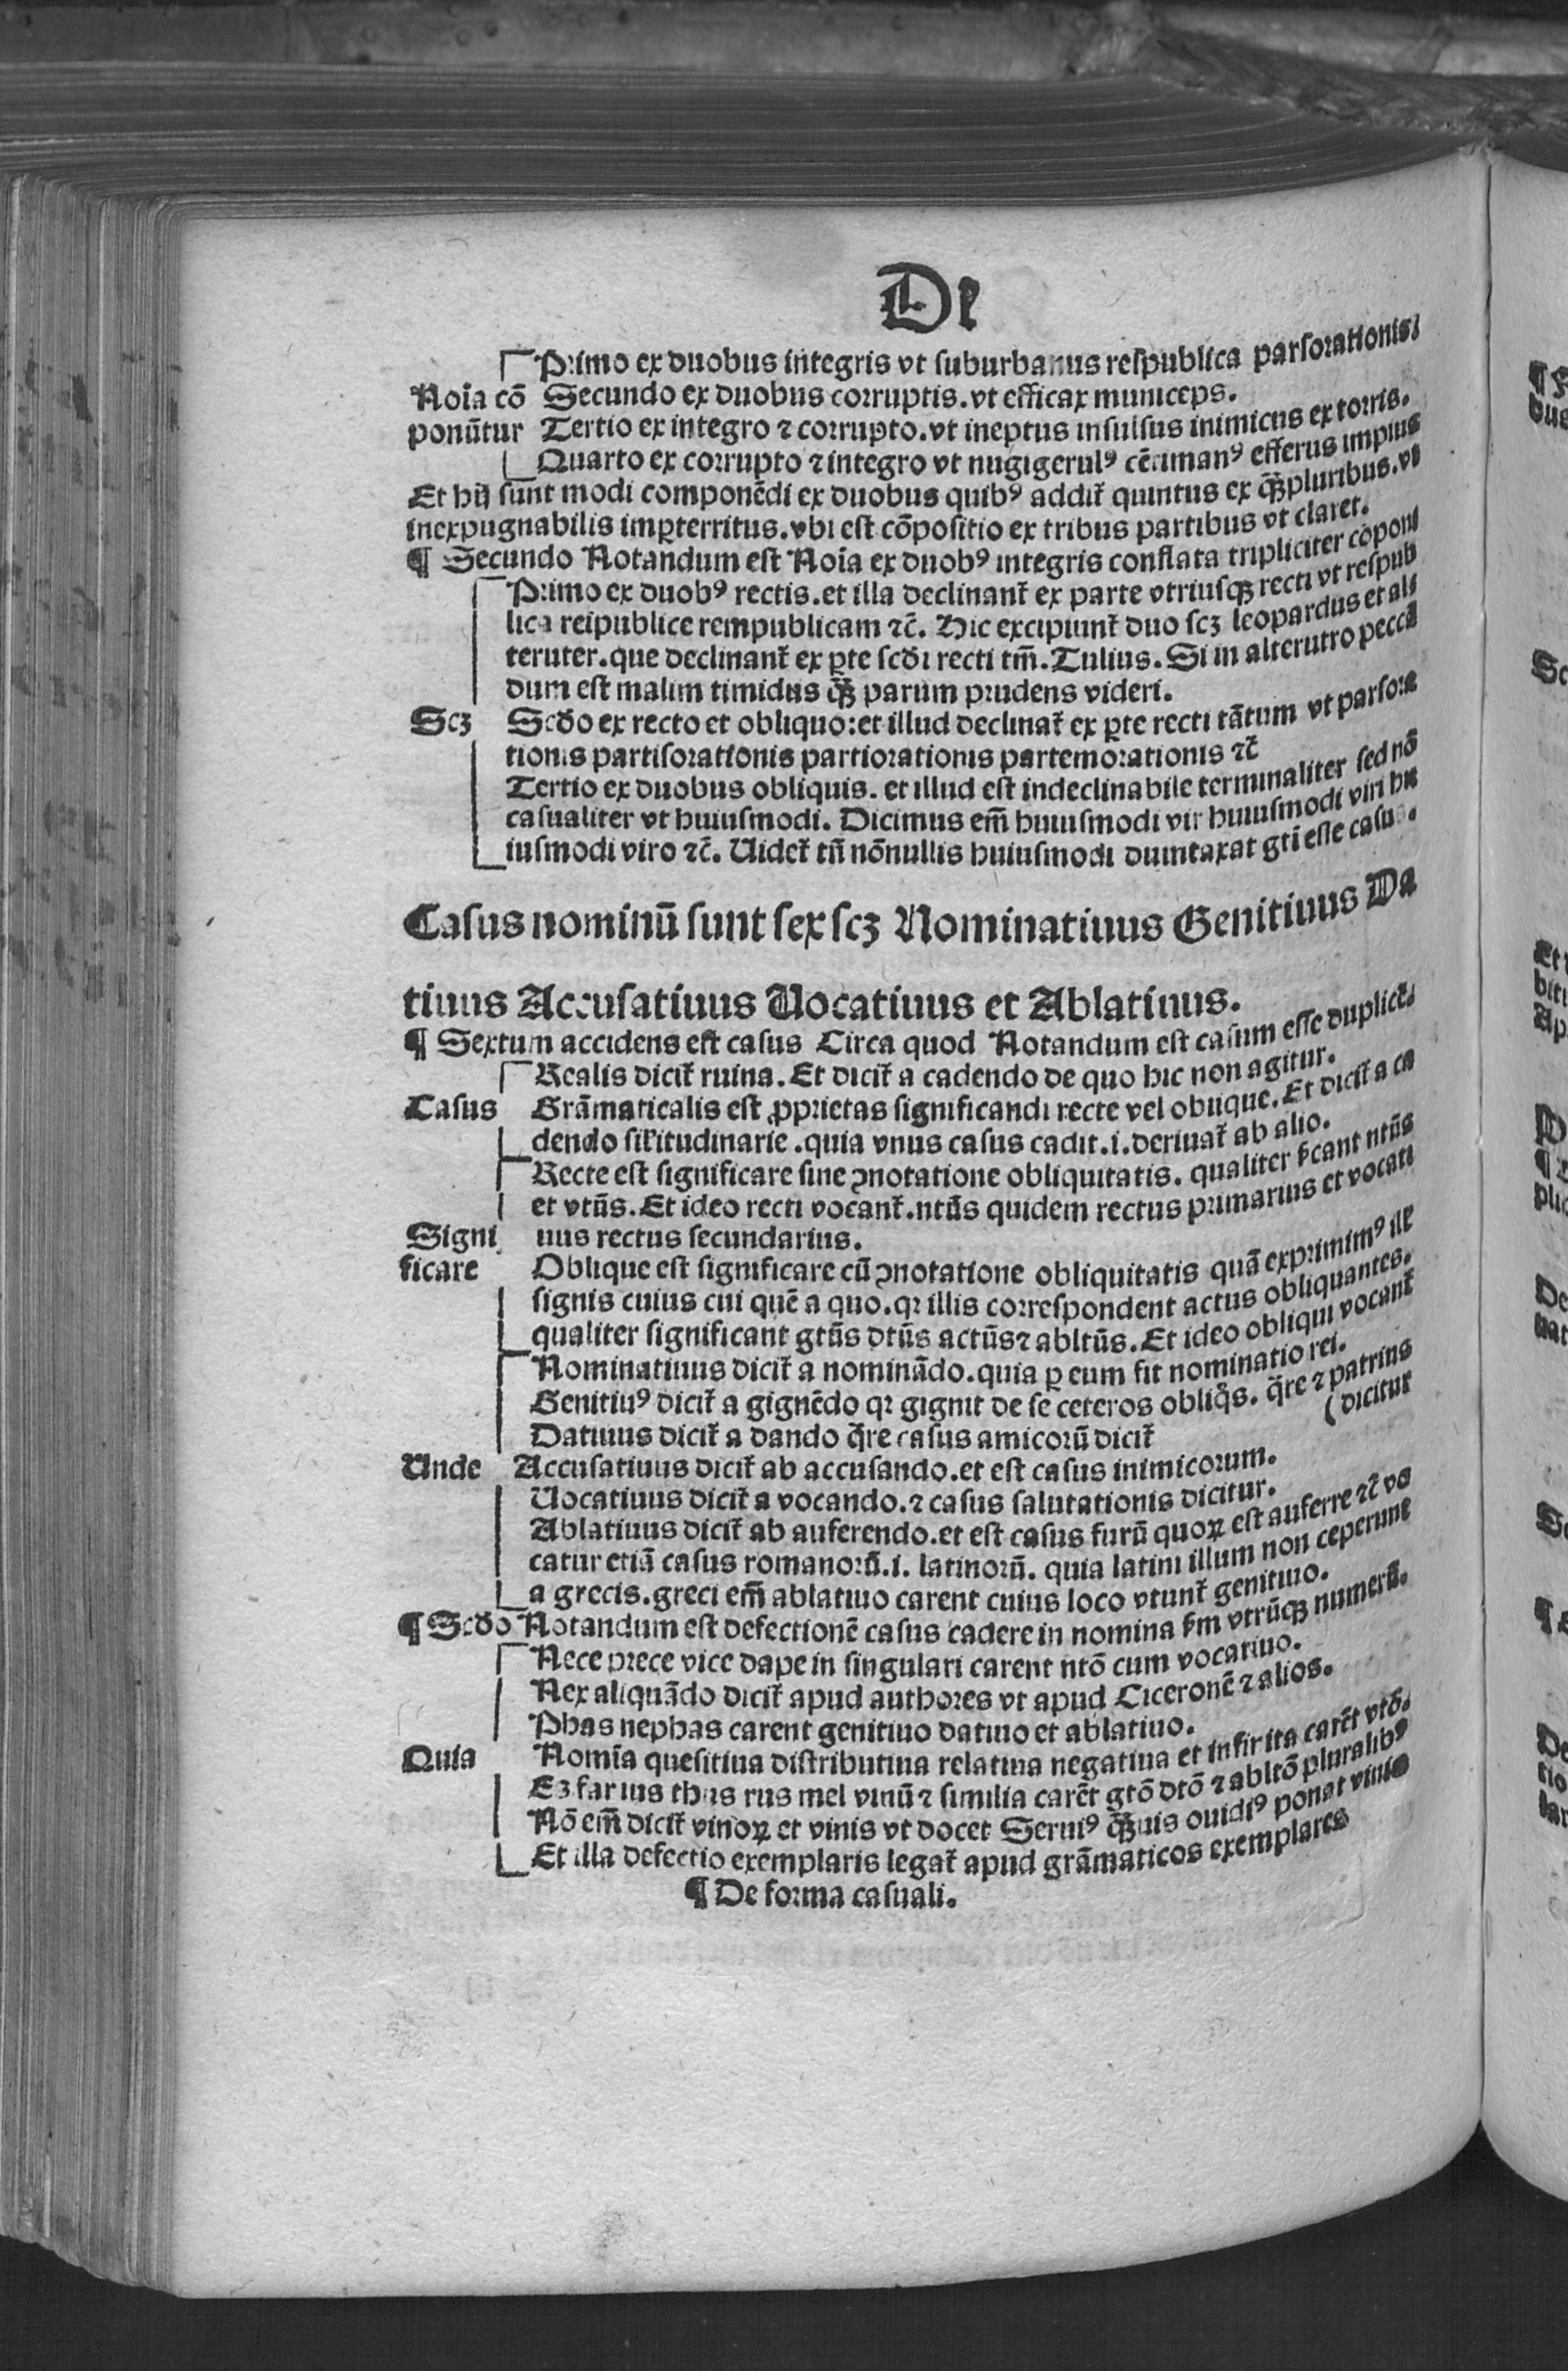 De
Primo ex duobus integris vt suburbanus respublica parsorationis.
Noīa cō Secundo ex duobus corruptis. vt efficax municeps.
ponūtur Tertio ex integro ⁊ corrupto. vt ineptus insulsus inimicus extorris.
Quarto ex corrupto ⁊ integro vt nugigerulꝰ cētimanꝰ efferus impius
Et hij sunt modi componēdi ex duobus quibꝰ addit̃ quintus ex qꝫ̃pluribus. vt
inexpugnabilis imꝑterritus. vbi est cōpositio ex tribus partibus vt claret.
¶ Secundo Notandum est Noīa ex duobꝰ integris conflata tripliciter cōponi
Primo ex duobꝰ rectis. et illa declinant̃ ex parte vtriusqꝫ recti vt respub
lica reipublice rempublicam ⁊c̃. Hic excipiunt̃ duo scꝫ leopardus et al
teruter. que declinant̃ ex ꝑte scđi recti tm̄. Tulius. Si in alterutro peccā
dum est malim timidus qꝫ̃ parum prudens videri.
Scꝫ Scđo ex recto et obliquo: et illud declinat̃ ex ꝑte recti tātum vt parsora
tionis partisorationis partiorationis partemorationis ⁊c̃
Tertio ex duobus obliquis. et illud est indeclinabile terminaliter sed nō
casualiter vt huiusmodi. Dicimus em̄ huiusmodi vir huiusmodi viri hu
iusmodi viro ⁊c̃. Uidet̃ tn̄ nōnullis huiusmodi duintaxat gti esse casus.
Casus nominū sunt sex scꝫ Nominatiuus Genitiuus Da
tiuus Accusatiuus Uocatiuus et Ablatiuus.
¶ Sextum accidens est casus Circa quod Notandum est casum esse duplicē.
Realis dicit̃ ruina. Et dicit̃ a cadendo de quo hic non agitur.
Casus Grāmaticalis est ꝓprietas significandi recte vel oblique. Et dicit̃ a ca
dendo sil̃itudinarie. quia vnus casus cadit. i. deriuat̃ ab alio.
Recte est significare sine ꝯnotatione obliquitatis. qualiter sc̃ant ntūs
et vtūs. Et ideo recti vocant̃. ntūs quidem rectus primarius et vocati
Signi uus rectus secundarius.
ficare Oblique est significare cū ꝯnotatione obliquitatis quā exprimimꝰ
signis cuius cui quē a quo. qꝛ illis correspondent actus obliquantes.
qualiter significant gtūs dtūs actūs ⁊ abltūs. Et ideo obliqui vocant̃
Nominatiuus dicit̃ a nominādo. quia ꝑ eum fit nominatio rei.
Genitiuꝰ dicit̃ a gignēdo qꝛ gignit de se ceteros obliq̄s. q̄re ⁊ patrius
(dicitur
Datiuus dicit̃ a dando q̄re casus amicorū dicit̃
Unde Accusatiuus dicit̃ ab accusando. et est casus inimicorum.
Uocatiuus dicit̃ a vocando. ⁊ casus salutationis dicitur.
Ablatiuus dicit̃ ab auferendo. et est casus furū quoꝝ est auferre ⁊c̃ vo
catur etiā casus romanorū. i. latinorū. quia latini illum non ceperunt
a grecis. greci em̄ ablatiuo carent cuius loco vtunt̃ genitiuo.
¶ Scđo Notandum est defectionē casus cadere in nomina sm̄ vtrūqꝫ numerū.
Nece prece vice dape in singulari carent ntō cum vocatiuo.
Nex aliquādo dicit̃ apud authores vt apud Ciceronē ⁊ alios.
Phas nephas carent genitiuo datiuo et ablatiuo.
Quia Nomīa quesitiua distributiua relatiua negatiua et infinita carēt vtō.
Eꝫ far ius thus rus mel vinū ⁊ similia carēt gtō dtō ⁊ abltō pluralibꝰ
Nō em̄ dicit̃ vinoꝝ et vinis vt docet Seruiꝰ qꝫ̃uis ouidiꝰ ponat vinis
Et illa defectio exemplaris legat̃ apud grāmaticos exemplares
¶ De forma casuali.